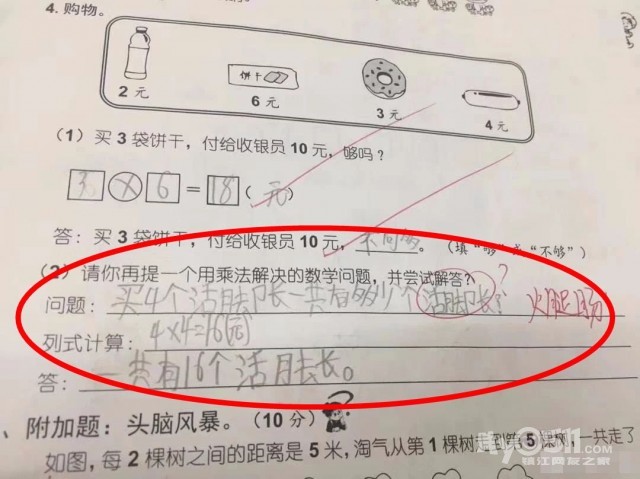 4. 购物。
饼干
2 元
6 元
3 元
4 元
(1) 买 3 袋饼干，付给收银员 10 元，够吗？
3 × 6 = 18 (元)
答：买 3 袋饼干，付给收银员 10 元，不同够。（填“够”或“不够”）
(2) 请你再提一个用乘法解决的数学问题，并尝试解答？
问题：买4个活月去卩长一共有多少个活月去卩长？ ? 火腿肠
列式计算：4×4=16(元)
答：一共有16个活月去长。
、附加题：头脑风暴。（10 分）
如图，每 2 棵树之间的距离是 5 米，淘气从第 1 棵树 第 5 棵树，一共走了
镇江网友之家